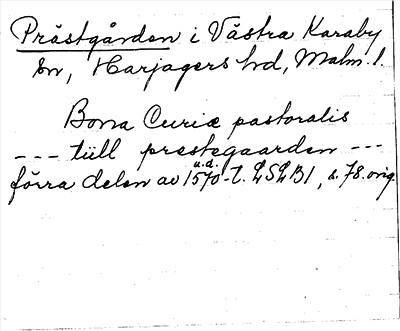 Prästgården i Västra Karaby
sn, Harjagers hd, Malm. l.
Bona Curiæ pastoralis
--- tüll prestegaarden ---
u.d.
förra delen av 1570-t. LSLB1, s. 78. orig.